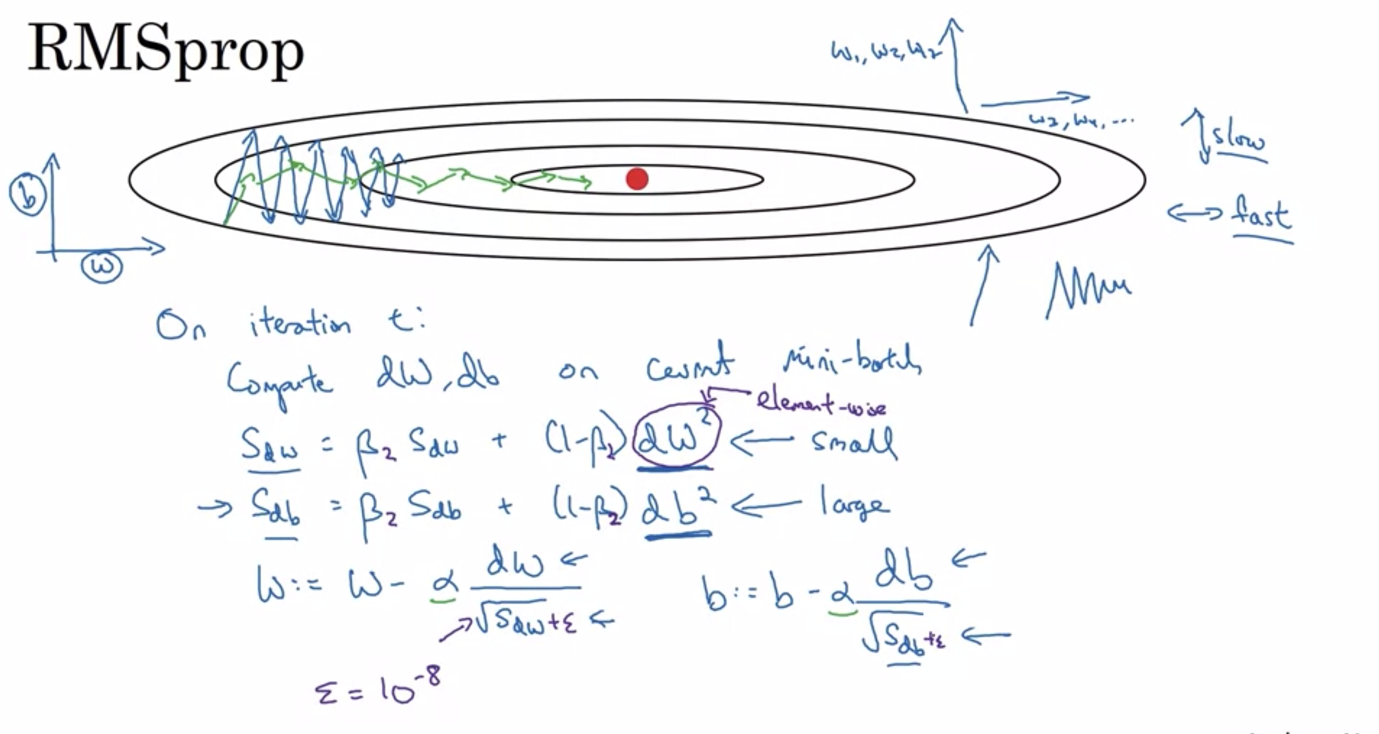 RMSprop
w₁, w₂, w₂
w₃, w₄, ...
slow
fast
b
w
On iteration t:
Compute dW, db on current mini-batch
element-wise
Sdw = β₂ Sdw + (1-β₂) dW² ← small
→ Sdb = β₂ Sdb + (1-β₂) db² ← large
W := W - α dW / √Sdw + ε ← b := b - α db / √Sdb + ε ←
ε = 10⁻⁸